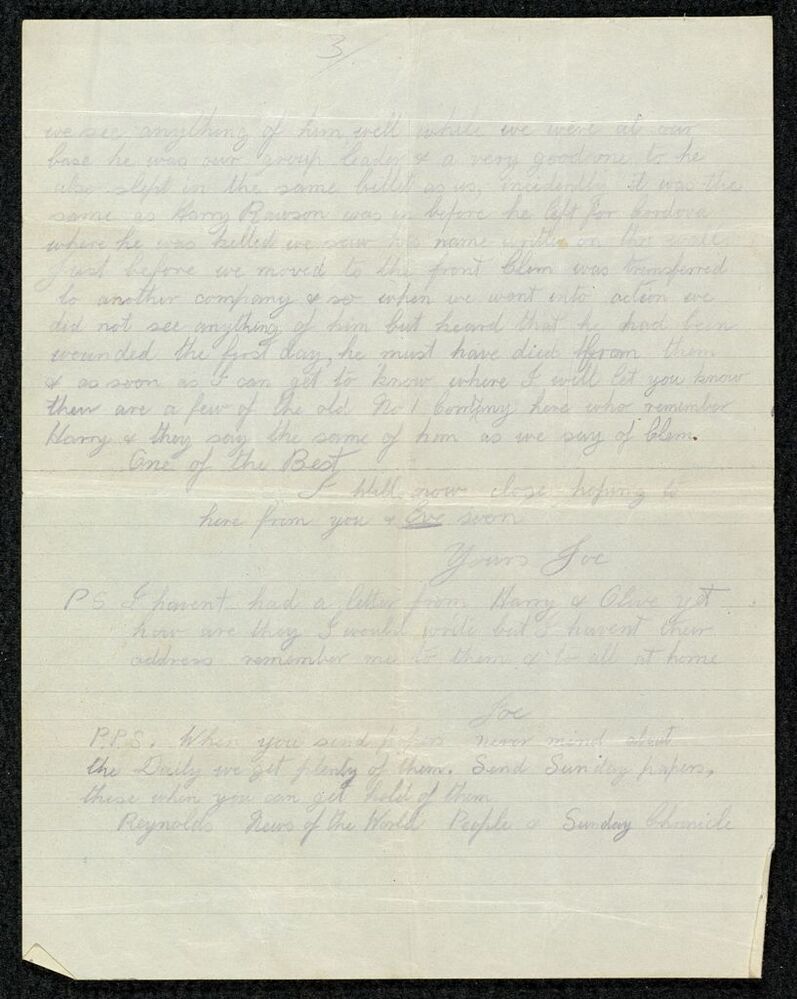 3/
we see anything of him well while we were at our
base he was our group leader & a very good one to he
also slept in the same billet as us, incidently it was the
same as Harry Rawson was in before he left for Cordova
where he was killed we saw his name written on the wall
Just before we moved to the front Clem was transferred
to another company & so when we went into action we
did not see anything of him but heard that he had been
wounded the first day, he must have died from them
& as soon as I can get to know where I will let you know
their are a few of the old No 1 Company here who remember
Harry & they say the same of him as we say of Clem.
One of the Best
I Will now close hoping to
here from you & Eve soon
Yours Joe
PS I havent had a letter from Harry & Olive yet
how are they I would write but I havent their
address remember me to them & to all at home
Joe
P.P.S. When you send papers never mind about
the Daily we get plenty of them. Send Sunday papers,
these when you can get hold of them
Reynolds News of the World People & Sunday Chronicle